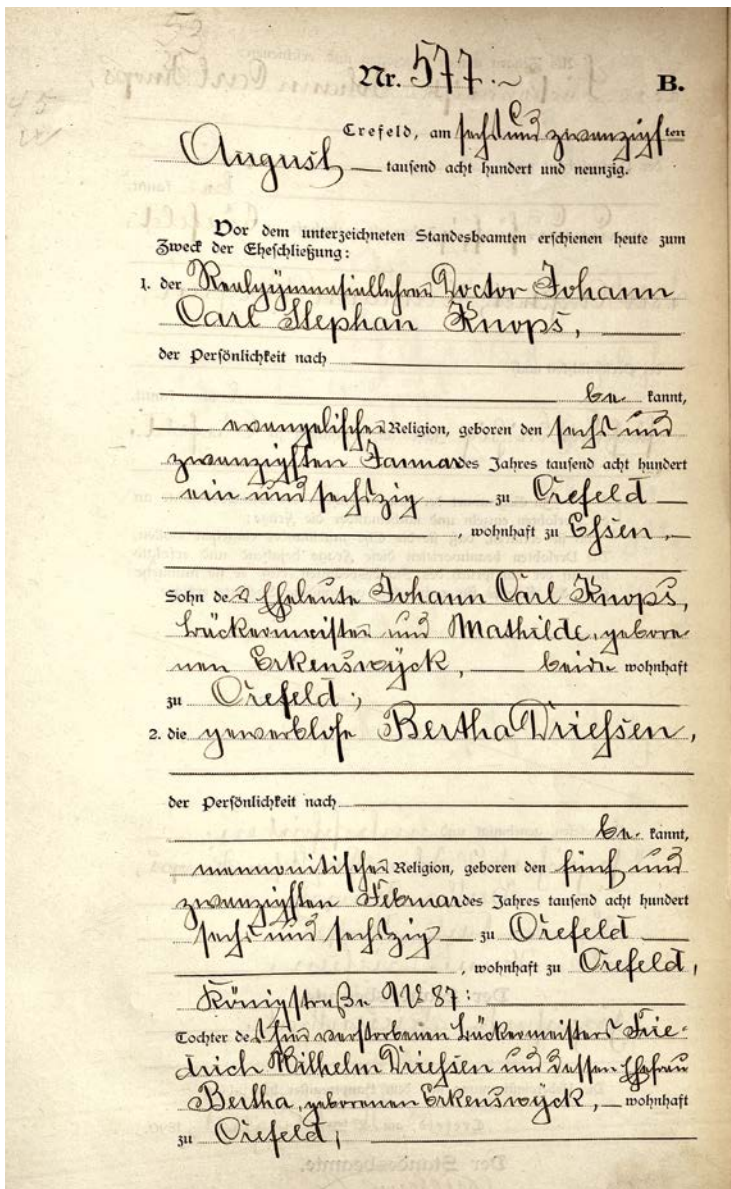 Nr. 577. B.
Crefeld, am sechs und zwanzigsten
August tausend acht hundert und neunzig.
Vor dem unterzeichneten Standesbeamten erschienen heute zum
Zweck der Eheschließung:
1. der Realgymnasiallehrer Doctor Johann
Carl Stephan Knops,
der Persönlichkeit nach
be kannt,
evangelischer Religion, geboren den sechs und
zwanzigsten Januar des Jahres tausend acht hundert
ein und sechszig zu Crefeld
, wohnhaft zu Essen,
Sohn der Eheleute Johann Carl Knops,
Bäckermeister und Mathilde, gebore-
nen Erkenswyck, beide wohnhaft
zu Crefeld;
2. die gewerblose Bertha Driessen,
der Persönlichkeit nach
be kannt,
mennonitischer Religion, geboren den fünf und
zwanzigsten Februar des Jahres tausend acht hundert
sechs und sechszig zu Crefeld
, wohnhaft zu Crefeld,
Königstraße No 87:
Tochter des hier verstorbenen Bäckermeisters Frie-
drich Wilhelm Driessen und dessen Ehefrau
Bertha, geborenen Erkenswyck, wohnhaft
zu Crefeld;